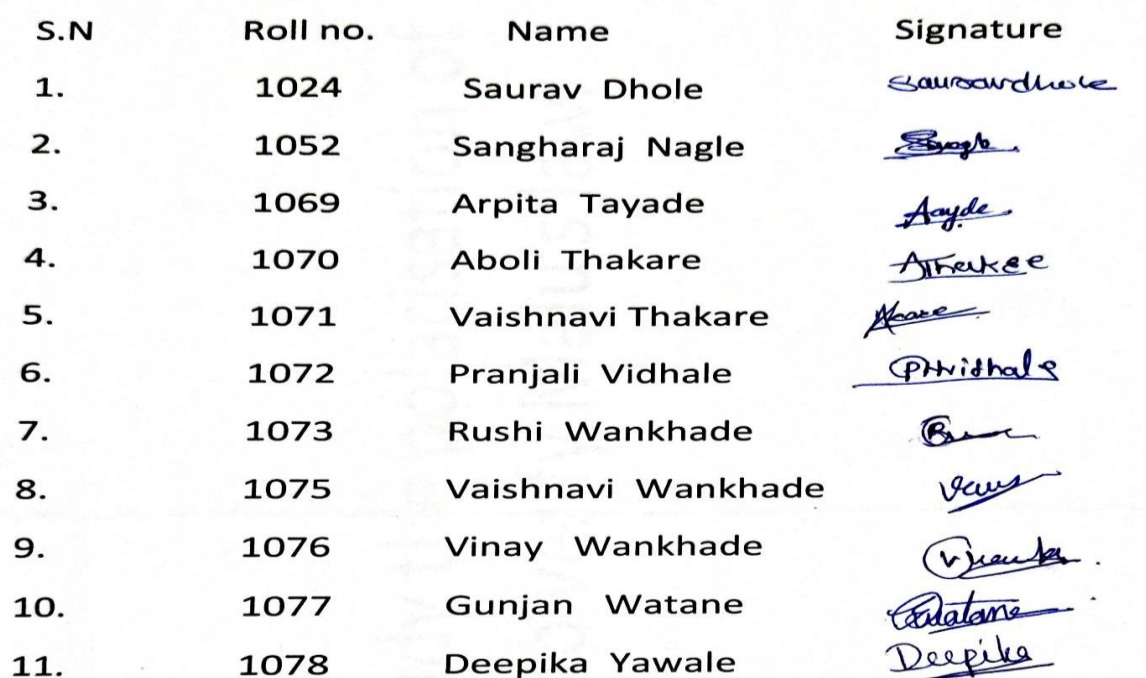 S.N Roll no. Name Signature
1. 1024 Saurav Dhole Sauravdhole
2. 1052 Sangharaj Nagle
3. 1069 Arpita Tayade Aayde
4. 1070 Aboli Thakare
5. 1071 Vaishnavi Thakare
6. 1072 Pranjali Vidhale PHvidhale
7. 1073 Rushi Wankhade
8. 1075 Vaishnavi Wankhade
9. 1076 Vinay Wankhade
10. 1077 Gunjan Watane
11. 1078 Deepika Yawale Deepika